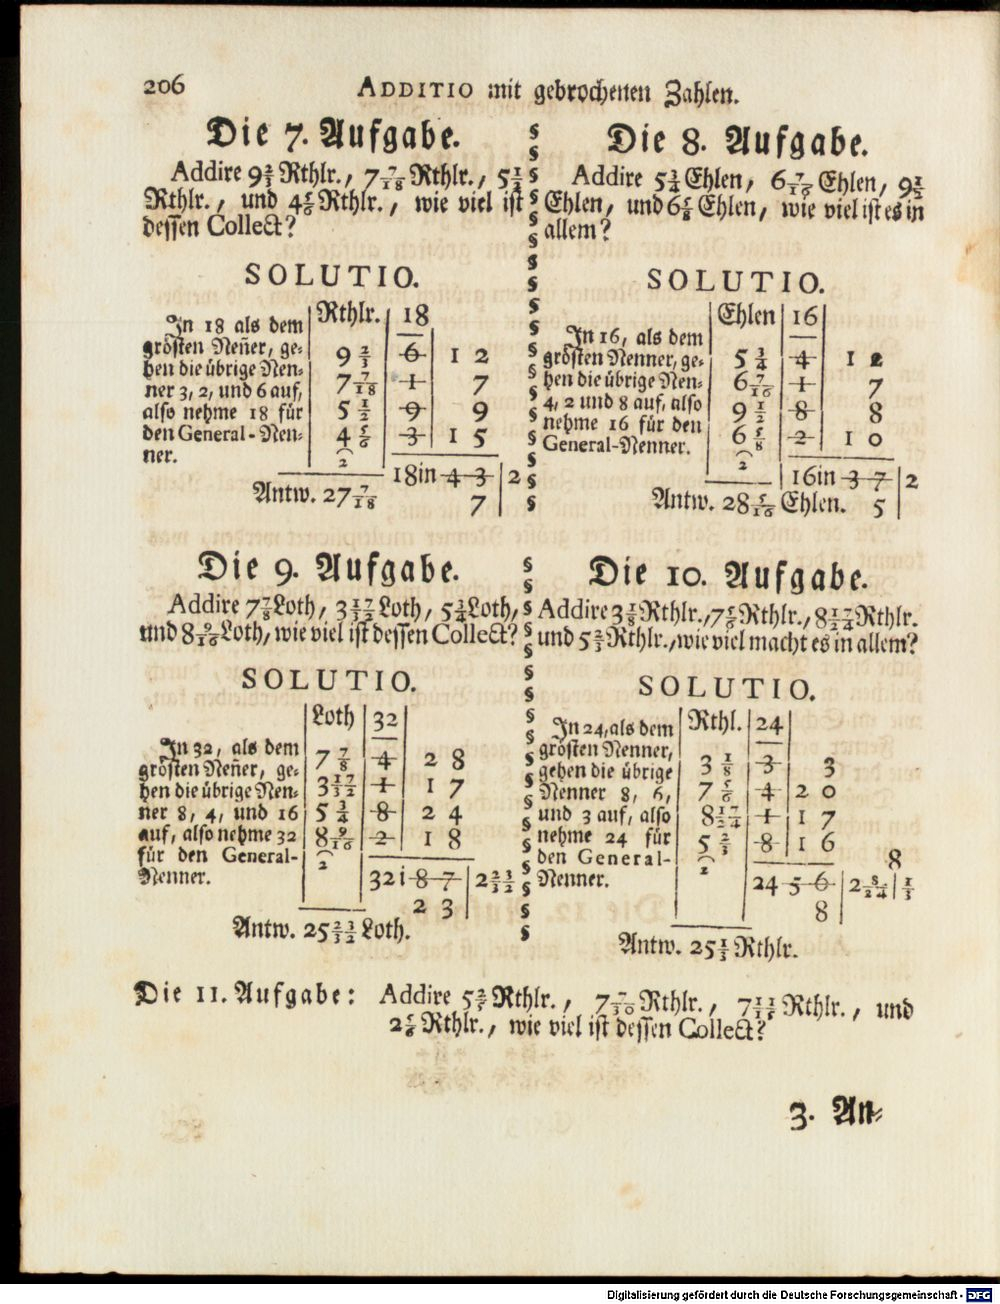 206 ADDITIO mit gebrochenen Zahlen.
Die 7. Aufgabe.
Addire 9 2/3 Rthlr., 7 7/18 Rthlr., 5 1/2
Rthlr., und 4 5/6 Rthlr., wie viel ist
dessen Collect?
SOLUTIO.
In 18 als dem
grösten Neñer, ge-
hen die übrige Nen-
ner 3, 2, und 6 auf,
also nehme 18 für
den General-Nen-
ner.
Rthlr. 18
9 2/3 6 1 2
7 7/18 1 7
5 1/2 9 9
4 5/6 3 1 5
2
18in 4 3 2
7
Antw. 27 7/18
Die 8. Aufgabe.
Addire 5 3/4 Ehlen, 6 7/16 Ehlen, 9 1/2
Ehlen, und 6 5/8 Ehlen, wie viel ist es in
allem?
SOLUTIO.
In 16, als dem
grösten Nenner, ge-
hen die übrige Nen-
4, 2 und 8 auf, also
nehme 16 für den
General-Nenner.
Ehlen 16
5 3/4 4 1 2
6 7/16 1 7
9 1/2 8 8
6 5/8 2 1 0
2
16in 3 7 2
5
Antw. 28 5/16 Ehlen.
Die 9. Aufgabe.
Addire 7 7/8 Loth, 3 17/32 Loth, 5 3/4 Loth,
und 8 9/16 Loth, wie viel ist dessen Collect?
SOLUTIO.
In 32, als dem
grösten Neñer, ge-
hen die übrige Nen-
ner 8, 4, und 16
auf, also nehme 32
für den General-
Nenner.
Loth 32
7 7/8 4 2 8
3 17/32 1 1 7
5 3/4 8 2 4
8 9/16 2 1 8
2
32 i 8 7 2 23/32
2 3
Antw. 25 23/32 Loth.
Die 10. Aufgabe.
Addire 3 1/8 Rthlr., 7 5/6 Rthlr., 8 17/24 Rthlr.
und 5 2/3 Rthlr., wie viel macht es in allem?
SOLUTIO.
In 24, als dem
grösten Nenner,
gehen die übrige
Nenner 8, 6,
und 3 auf, also
nehme 24 für
den General-
Nenner.
Rthl. 24
3 1/8 3 3
7 5/6 4 2 0
8 17/24 1 1 7
5 2/3 8 1 6
2 8
24 5 6 2 8/24 1/3
8
Antw. 25 1/3 Rthlr.
Die 11. Aufgabe: Addire 5 2/5 Rthlr., 7 7/30 Rthlr., 7 11/15 Rthlr., und
2 5/6 Rthlr., wie viel ist dessen Collect?
3. An-
Digitalisierung gefördert durch die Deutsche Forschungsgemeinschaft - DFG